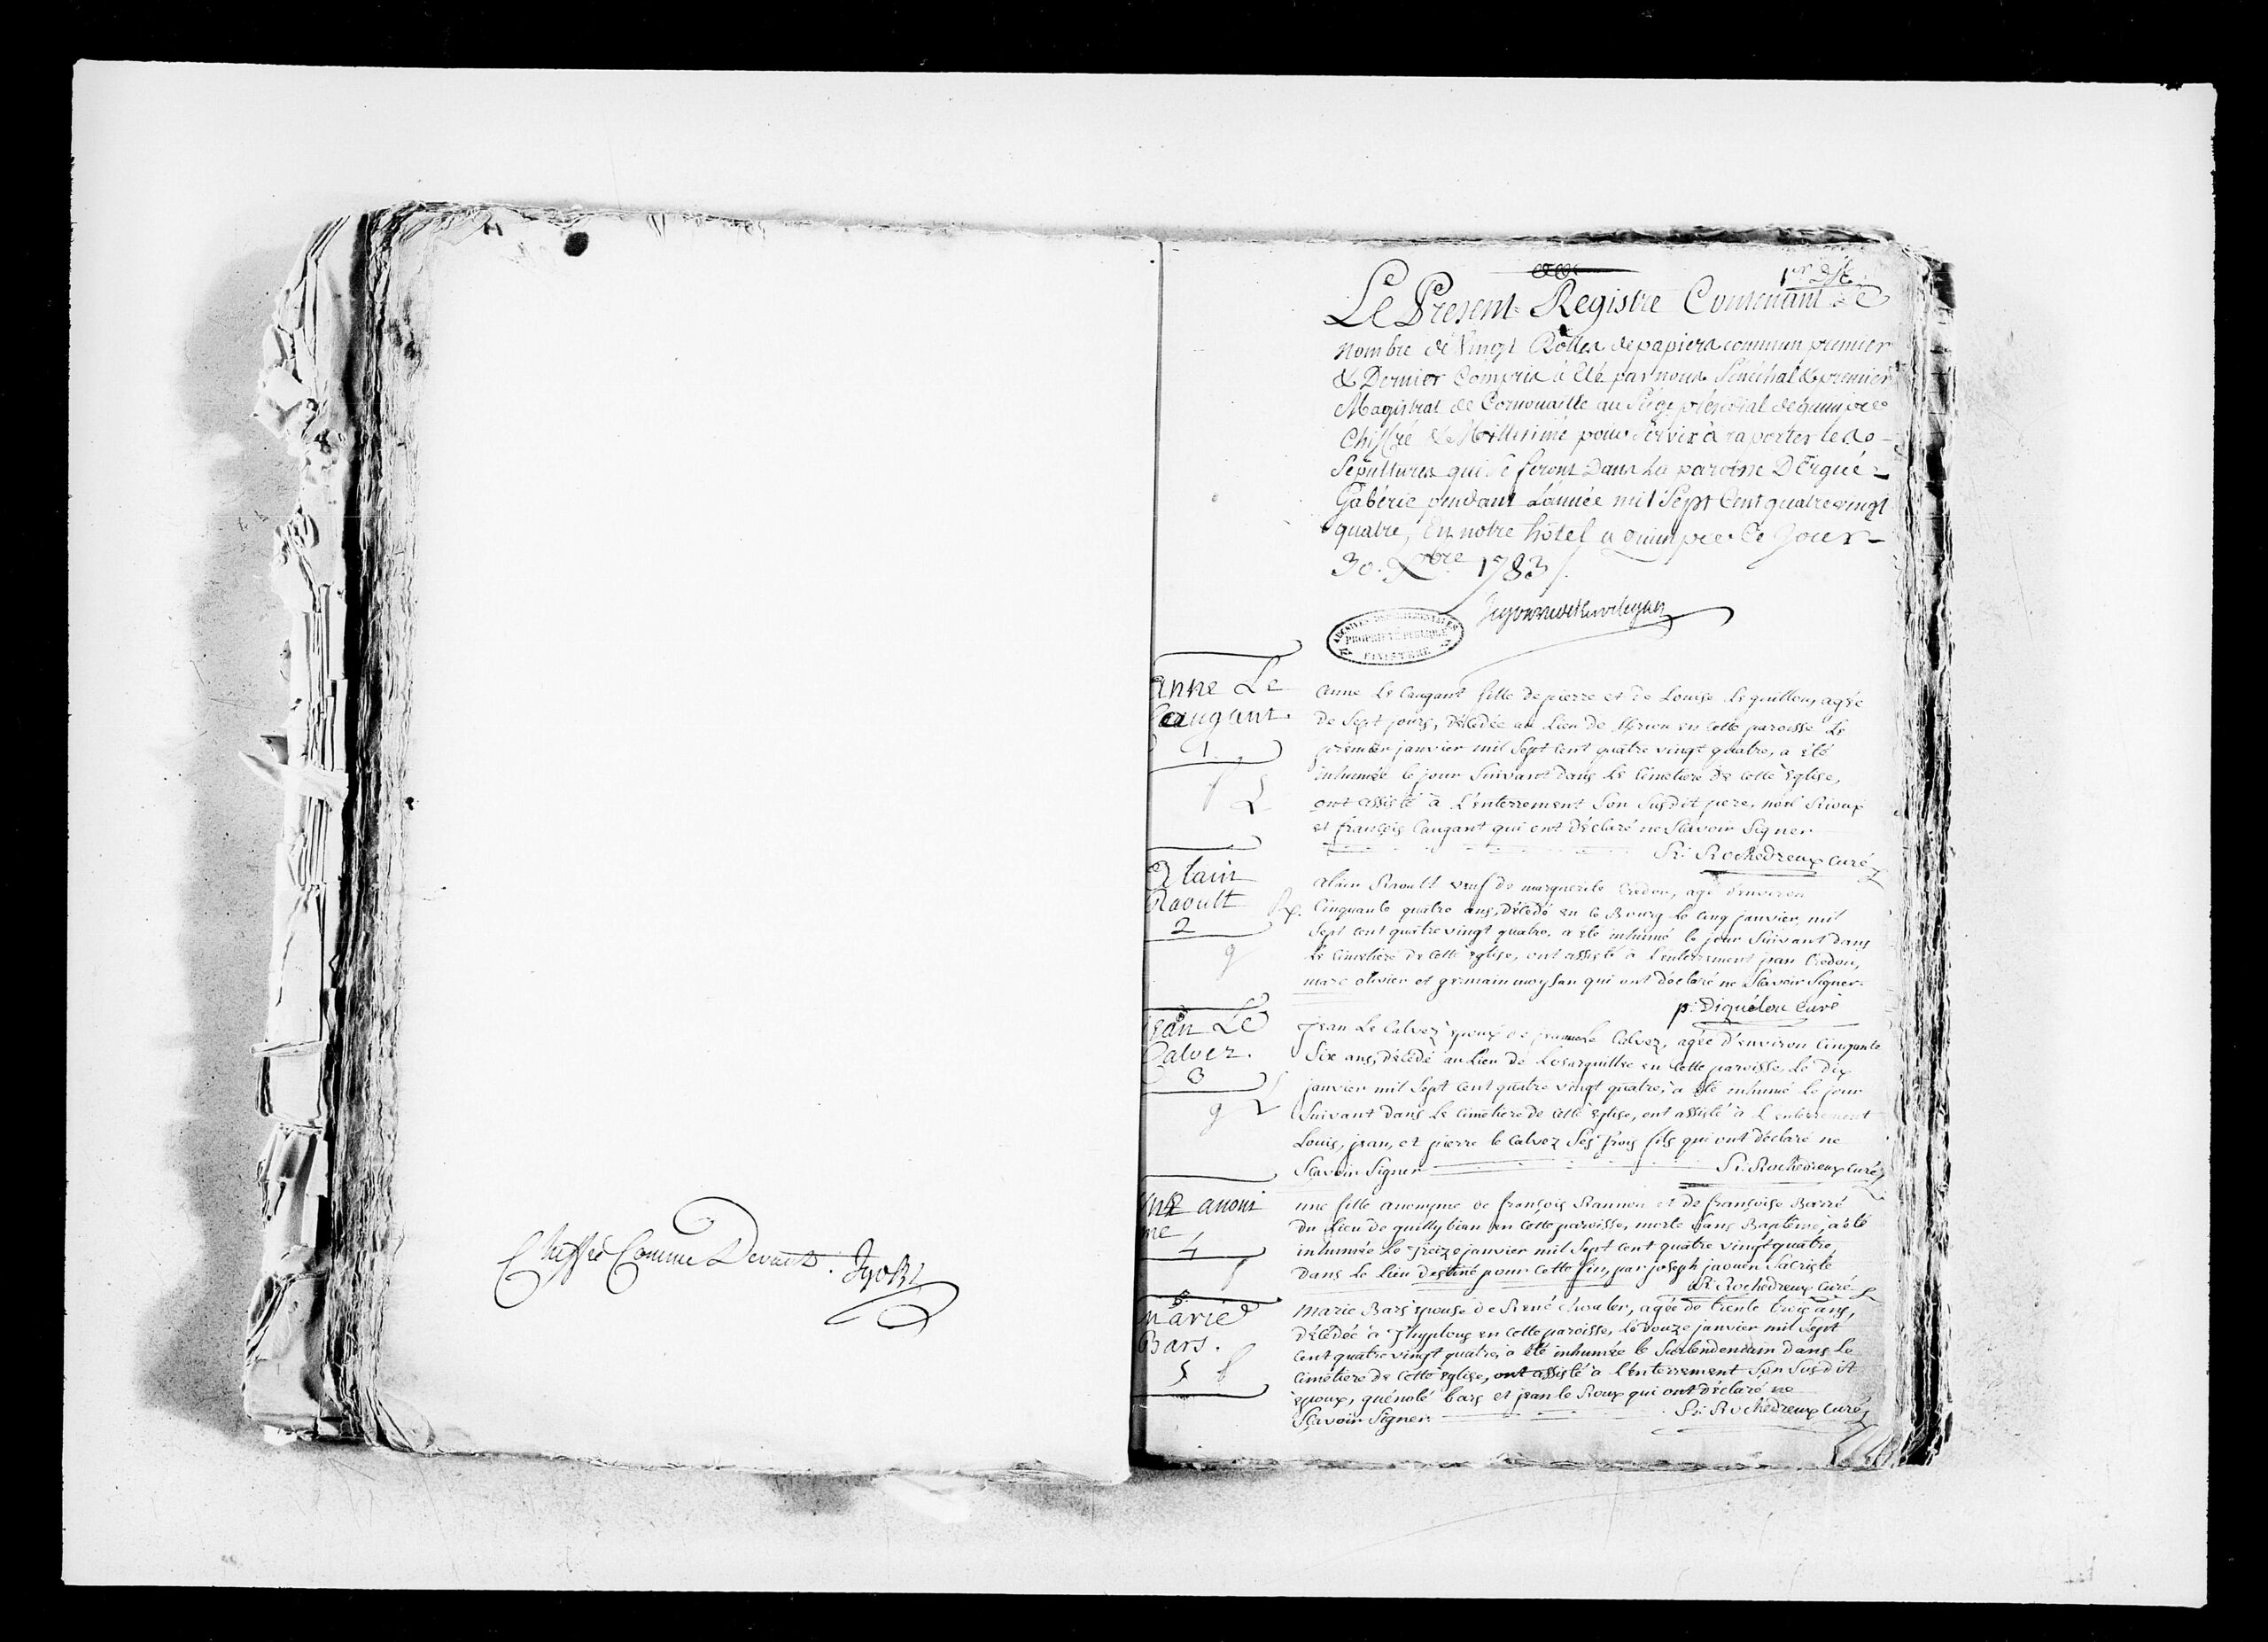 Chiffré Comme Devant.
1er
Le Present Registre Contenant Le
nombre de Vingt Rolles de papiers commun premier
& Dernier Compris a été par nous Senechal & premier
Magistrat de Cornouaille au Siege présidial de quimper
Chiffré & Millesimé pour Servir à raporter les
Sepultures qui Se feront Dans La paroisse D'Ergué-
Gabéric pendant L'année mil Sept Cent quatre vingt
quatre, En notre hôtel a quimper Ce Jour
30. Xbre 1783
ARCHIVES DEPARTEMENTALES
PROPRIETE PUBLIQUE
FINISTERE
anne Le
Caugant
1
anne Le Caugant fille de pierre et de Louise Le quillou, agée
de Sept jours, Décédée au Lieu de en cette paroisse Le
premier janvier mil Sept cent quatre vingt quatre, a été
inhumée le jour Suivant dans Le Cimetiere de cette Eglise,
ont assisté à L'enterrement Son Susdit pere, noel Rioux
et françois Caugant qui ont déclaré ne Scavoir Signer
R: Rochedreux Curé
Alain
Raoult
2
alain Raoult veuf de marguerite Credou, agé d'environ
Cinquante quatre ans, Décédé en ce Bourg Le Cinq janvier mil
Sept cent quatre vingt quatre, a été inhumé le jour Suivant dans
Le Cimetiere de Cette Eglise, ont assisté à L'enterrement jean Credou,
marc olivier et germain moysan qui ont déclaré ne Scavoir Signer.
p: Diquélou Curé
jean Le
Calvez.
3
jean Le Calvez Epoux de Le Calvez, agée d'environ Cinquante
Six ans, Décédé au Lieu de en Cette paroisse, Le Dix
janvier mil Sept Cent quatre vingt quatre, a été inhumé Le jour
Suivant dans Le Cimetiere de cette Eglise, ont assisté à L'enterrement
Louis, jean, et pierre le Calvez Ses trois fils qui ont déclaré ne
Scavoir Signer R: Rochedreux Curé
une anoni
me
4
une fille anonyme de françois Rannou et de françoise Barré
du Lieu de quillybian en Cette paroisse, morte Sans Baptême, a été
inhumée Le treize janvier mil Sept Cent quatre vingt quatre
dans Le Lieu destiné pour Cette fin, par joseph jaouen Sacriste
R: Rochedreux Curé
marie
Bars.
5
marie Bars Epouse de René agée de trente trois ans,
Décédée à en Cette paroisse, Le Douze janvier mil Sept
Cent quatre vingt quatre, a été inhumée le Surlendemain dans Le
Cimetiere de Cette Eglise, ont assisté à L'enterrement Son Susdit
Epoux, guénolé bars et jean le Rioux qui ont déclaré ne
Scavoir Signer R: Rochedreux Curé